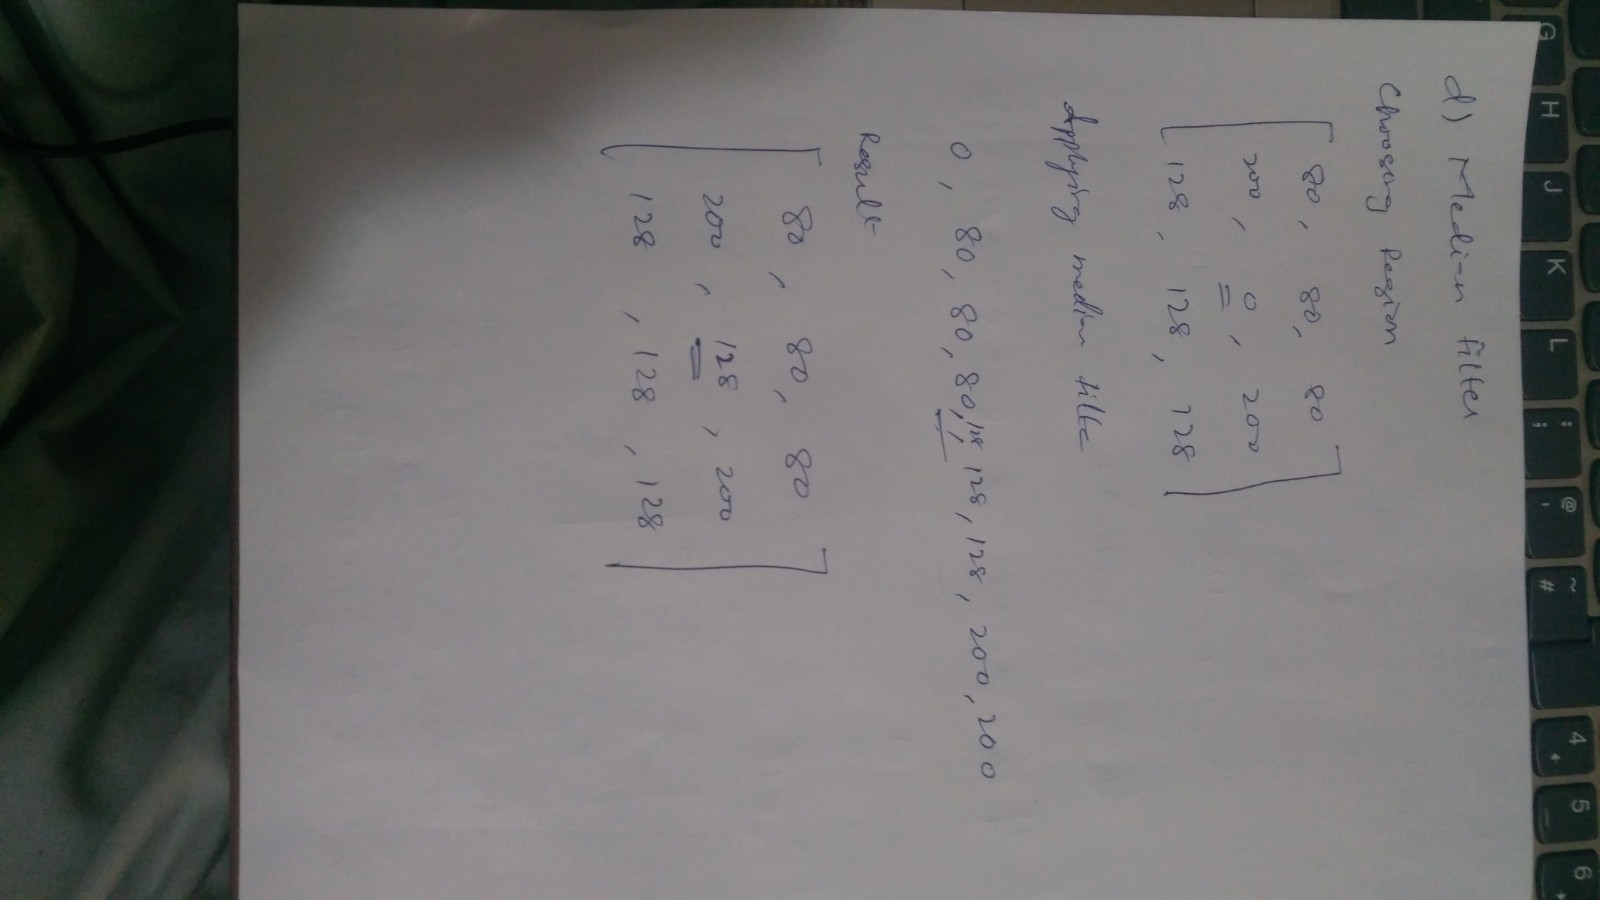 d) Median filter
Choosing Region
80, 80, 80
200, 0, 200
128, 128, 128
Applying median filte
0, 80, 80, 80, 128, 128, 128, 200, 200
Result
80, 80, 80
200, 128, 200
128, 128, 128
G
H
J
K
L
: ;
@ '
~ #
4
5
6